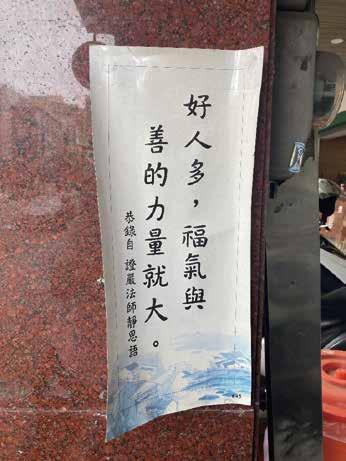 好人多，福氣與
善的力量就大。
恭錄自 證嚴法師靜思語